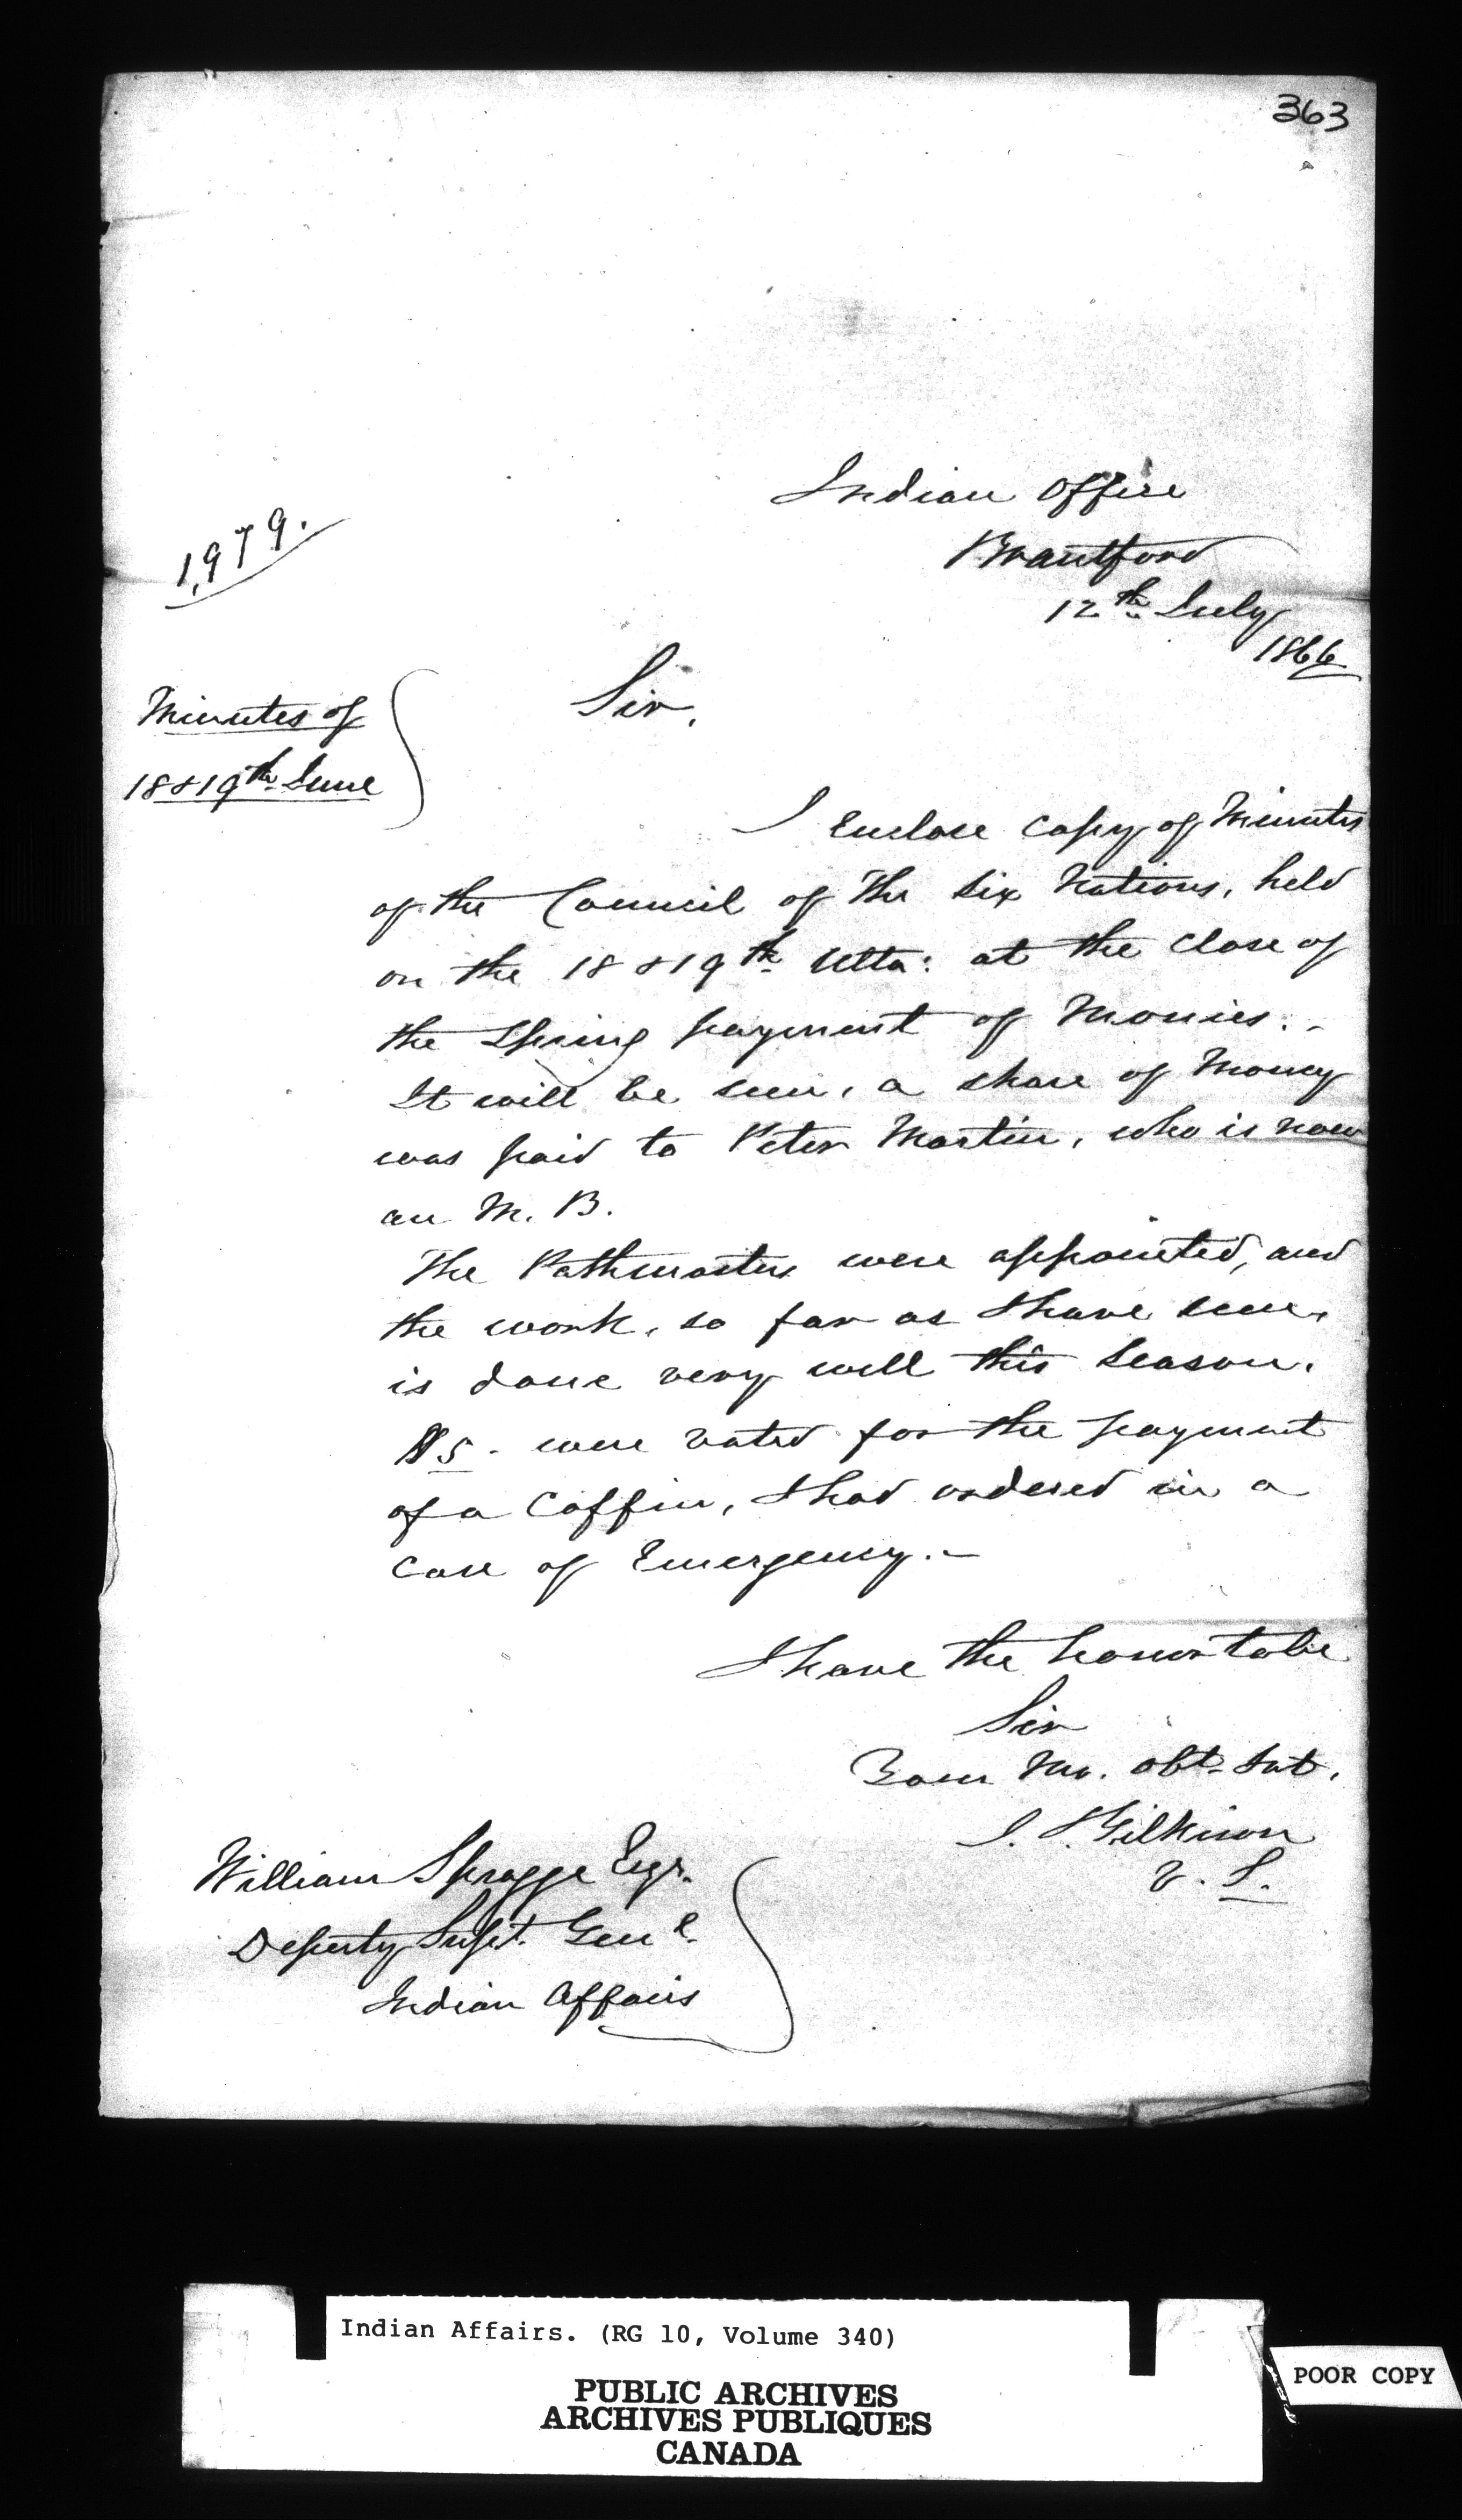 363
Indian Office
Brantford
12th July
1866
1,979.
Minutes of
18 & 19th June
Sir,
I Enclose copy of Minutes
of the Council of The Six Nations, held
on the 18 & 19th Ulto: at the close of
the Spring payment of Monies. -
It will be seen, a share of Money
was paid to Peter Martin, who is now
an M. B.
The Pathmasters were appointed, and
the work, so far as I have seen,
is done very well this Season.
$5. were voted for the payment
of a Coffin, I had ordered in a
Case of Emergency. -
I have the honor to be
Sir
Your Mo. Obt. Svt.
J. T. Gilkison
V. S.
William Spragge Esqr.
Deputy Supt. Genl.
Indian Affairs
Indian Affairs. (RG 10, Volume 340)
PUBLIC ARCHIVES
ARCHIVES PUBLIQUES
CANADA
POOR COPY